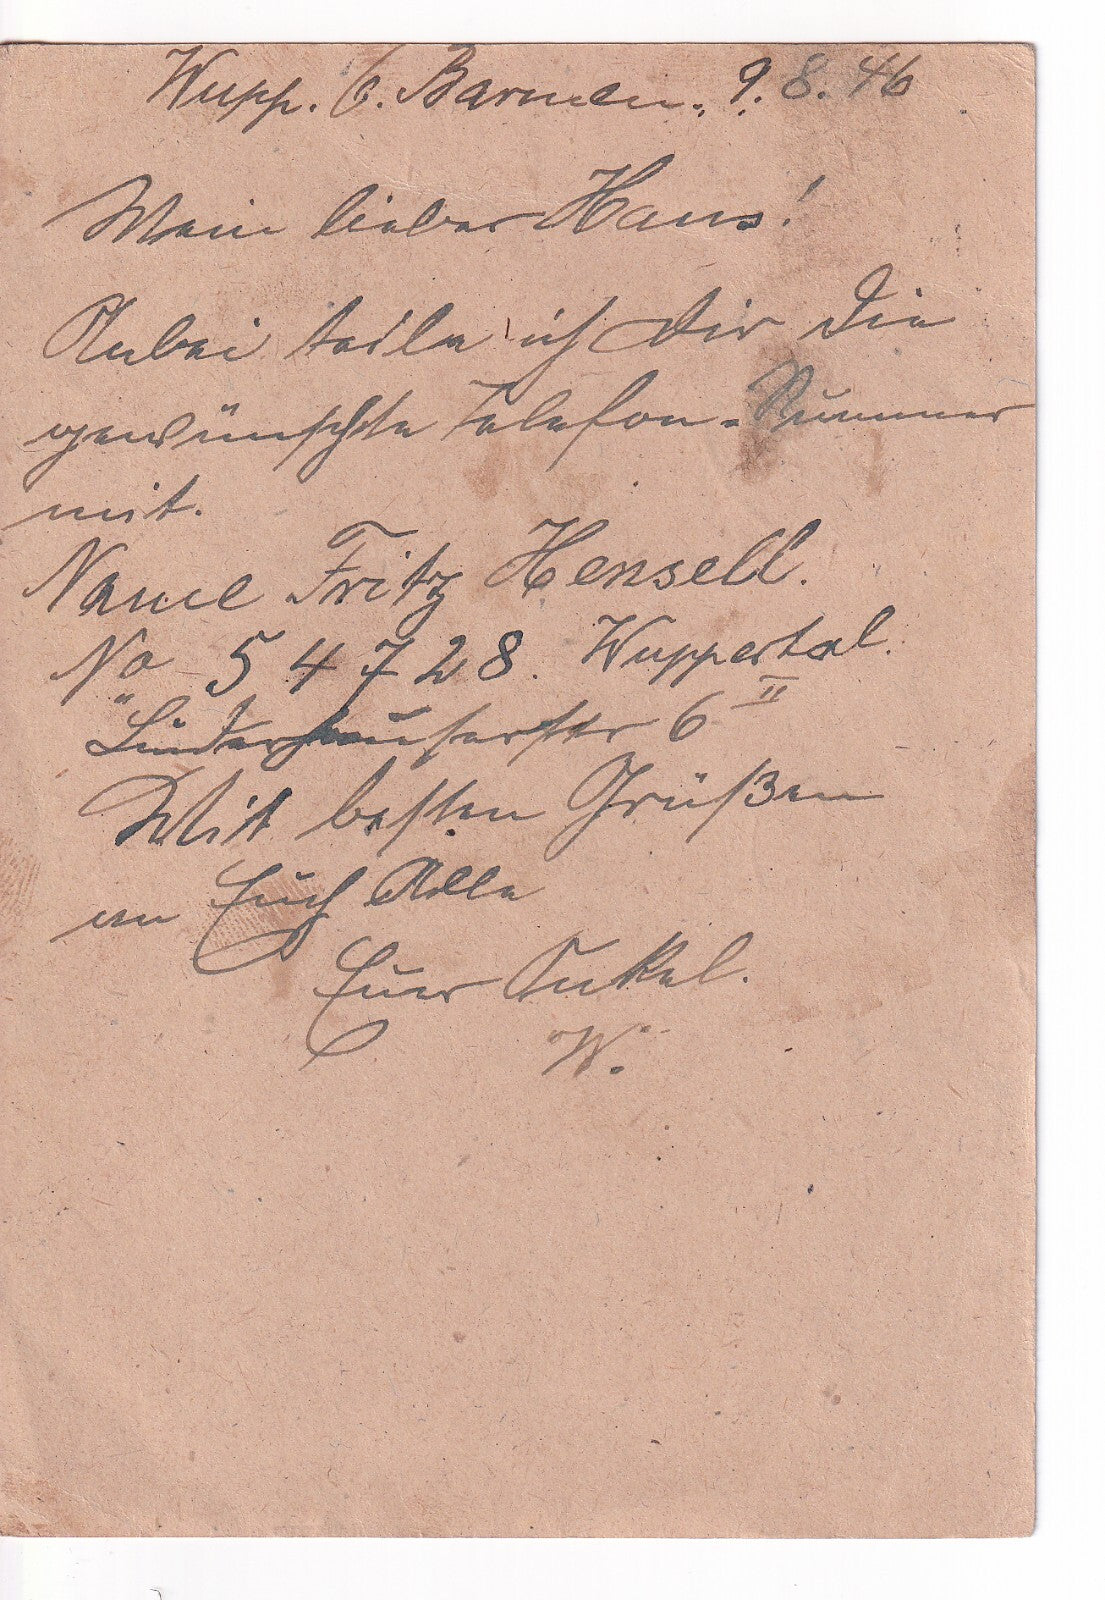 Wupp. 6. Barmen. 9. 8. 46
Mein lieber Hans!
Anbei teile ich Dir die
gewünschte Telefon-Nummer
mit.
Name Fritz Hensell.
No 54728. Wuppertal.
Linderhauserstr 6 II
Mit besten Grüßen
an Euch Alle
Euer Onkel.
W.